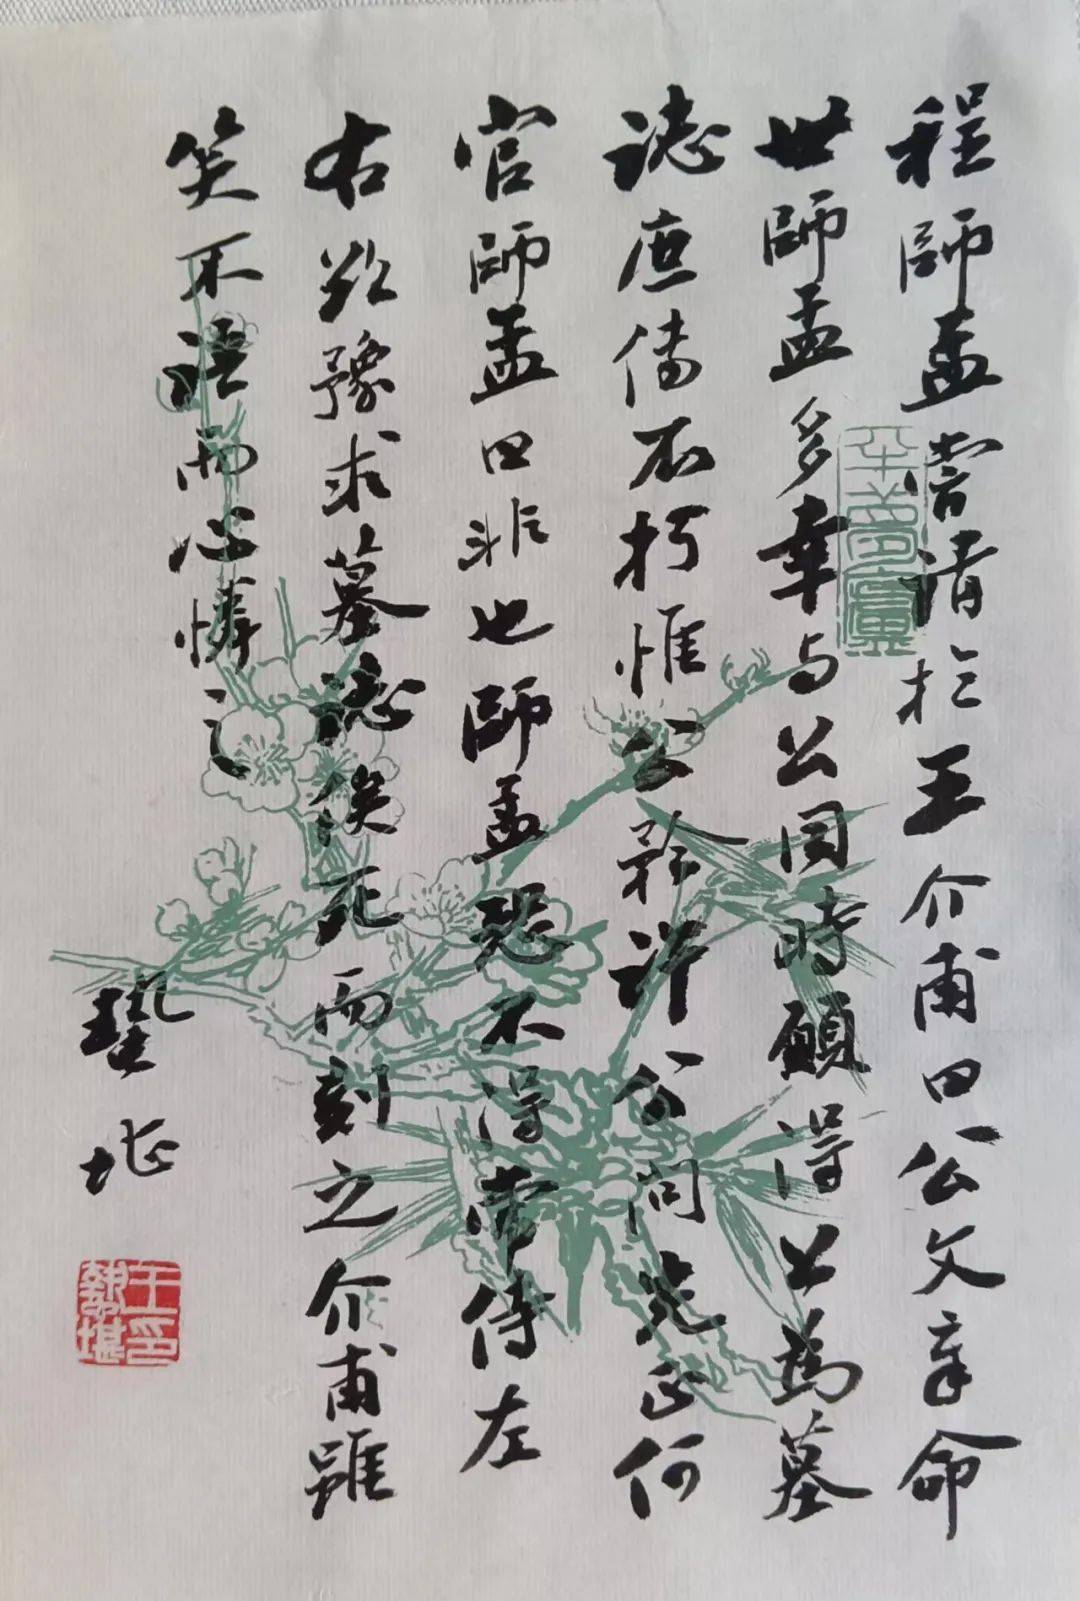 程師孟嘗請於王介甫曰公文章命
世師孟多幸与公同時願得公為墓
誌庶傳不朽惟公矜許公問先正何
官師孟曰非也師孟恐不得常侍左
右欲豫求墓誌俟死而刻之介甫雖
笑不語而心憐之
蟄堪
王印
蟄堪